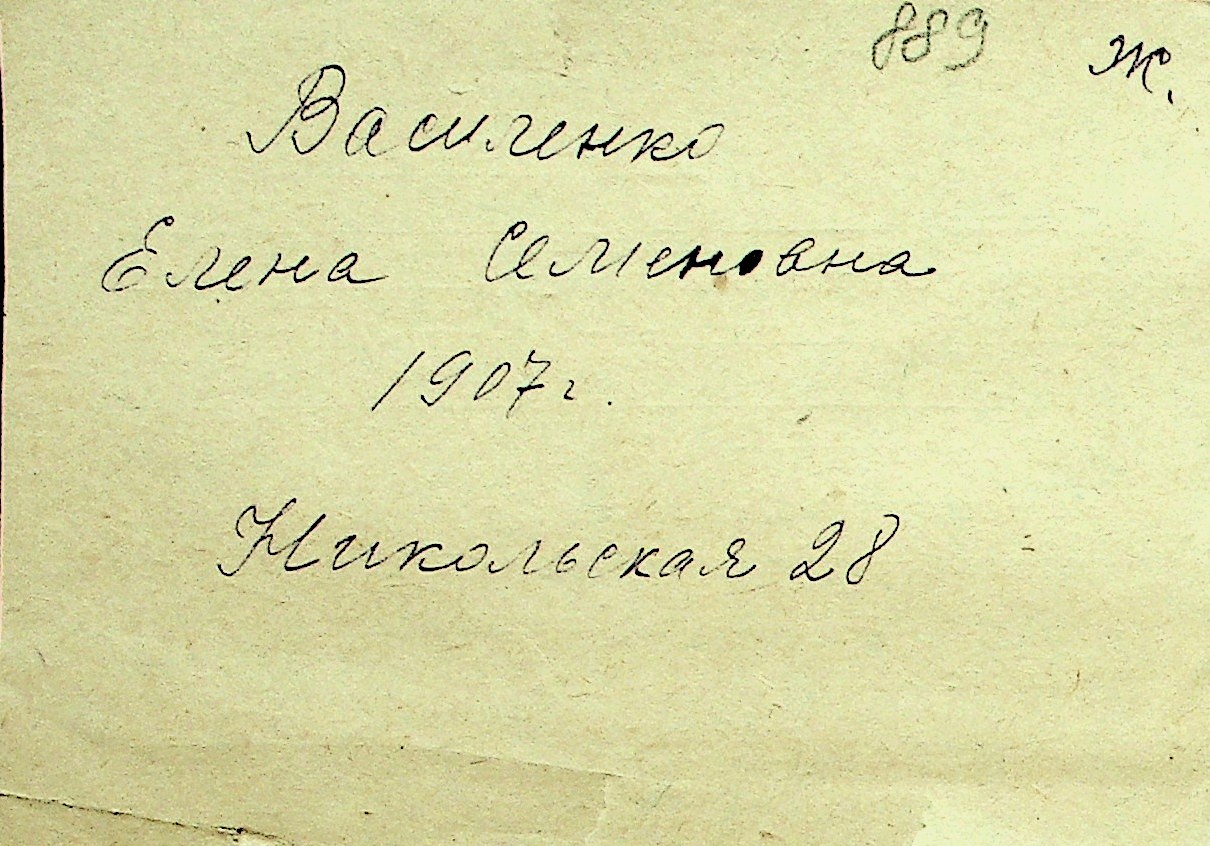 889 ж.
Василенко
Елена Семеновна
1907 г.
Никольская 28